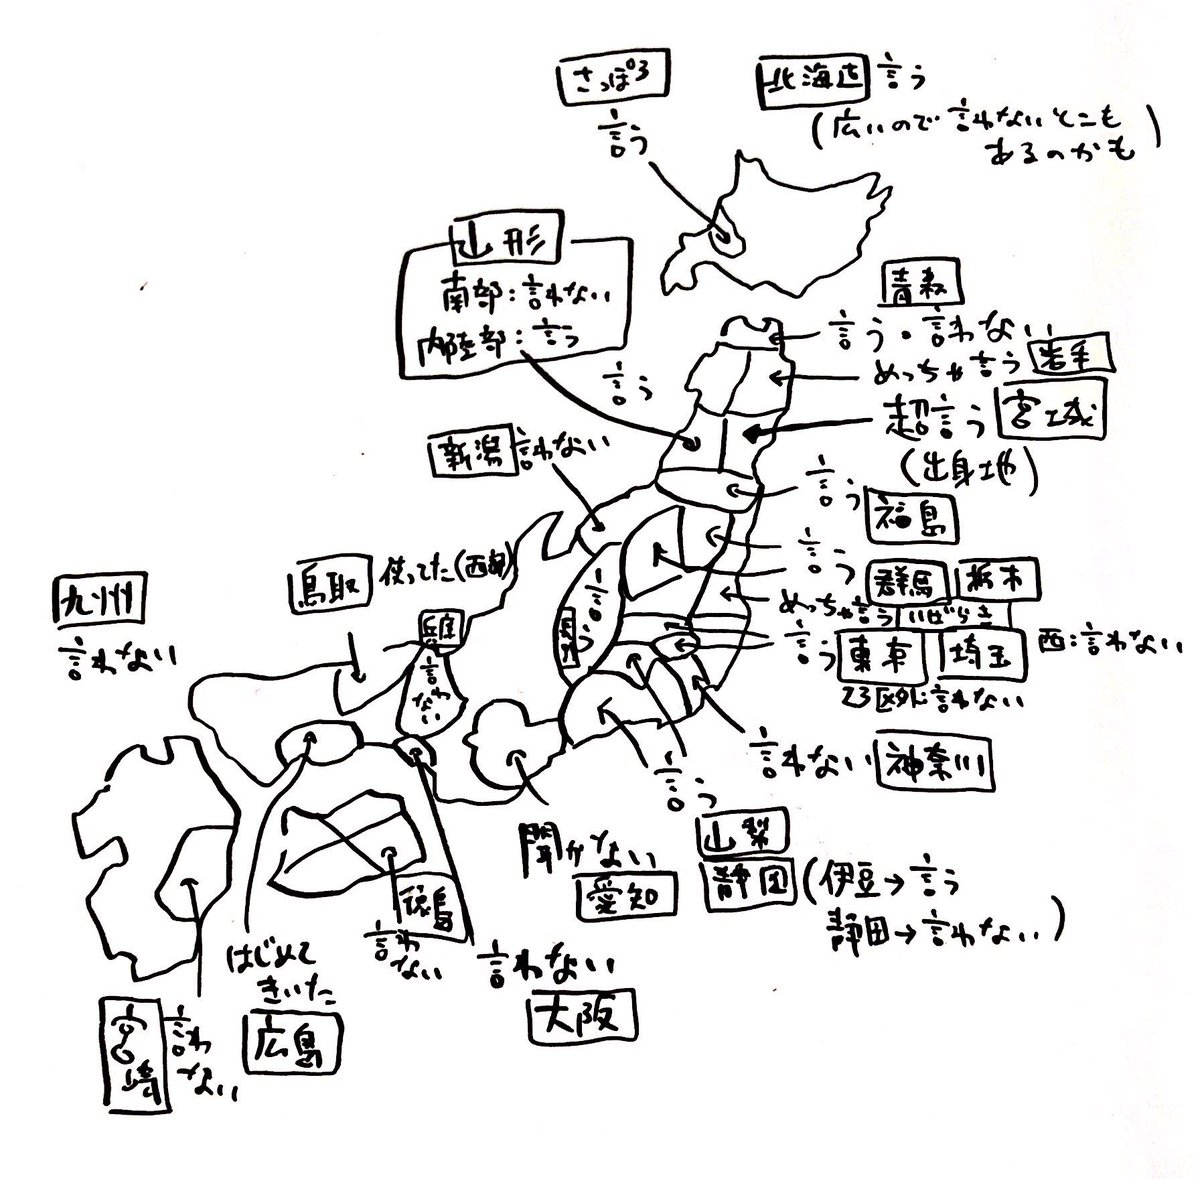 さっぽろ
言う
北海道 言う
(広いので言わないとこも
あるのかも)
山形
南部:言わない
内陸部:言う
言う
青森
言う・言わない
めっちゃ言う 岩手
超言う 宮城
(出身地)
新潟 言わない
言う
福島
言う
群馬 栃木
めっちゃ言う いばらき
言う 東京 埼玉 西:言わない
23区外言わない
言わない 神奈川
言う
長野
鳥取 使ってた(西部)
兵庫
言わない
九州
言わない
言う
山梨
静岡 (伊豆→言う
静岡→言わない)
聞かない
愛知
徳島
言わ
ない
言わない
大阪
はじめて
きいた
広島
宮崎
言わ
ない